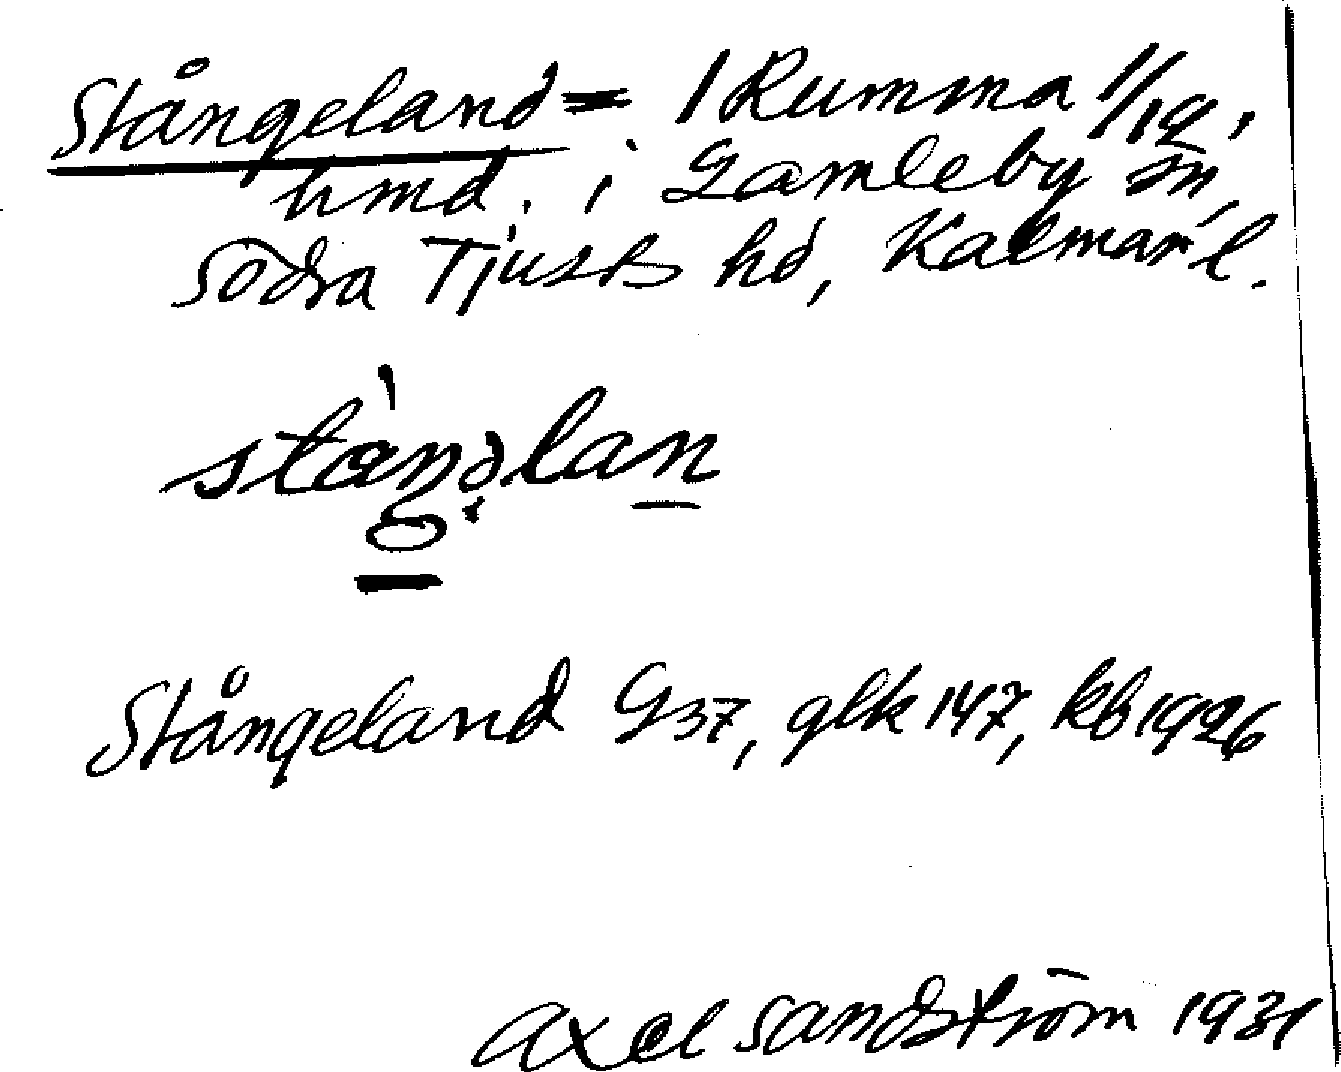 Stångeland = 1 Rumma 1/19,
hmd. i Gamleby sn,
Södra Tjusts hd, Kalmar l.
Stångeland G37, glk 147, kb 1926
Axel Sandström 1931